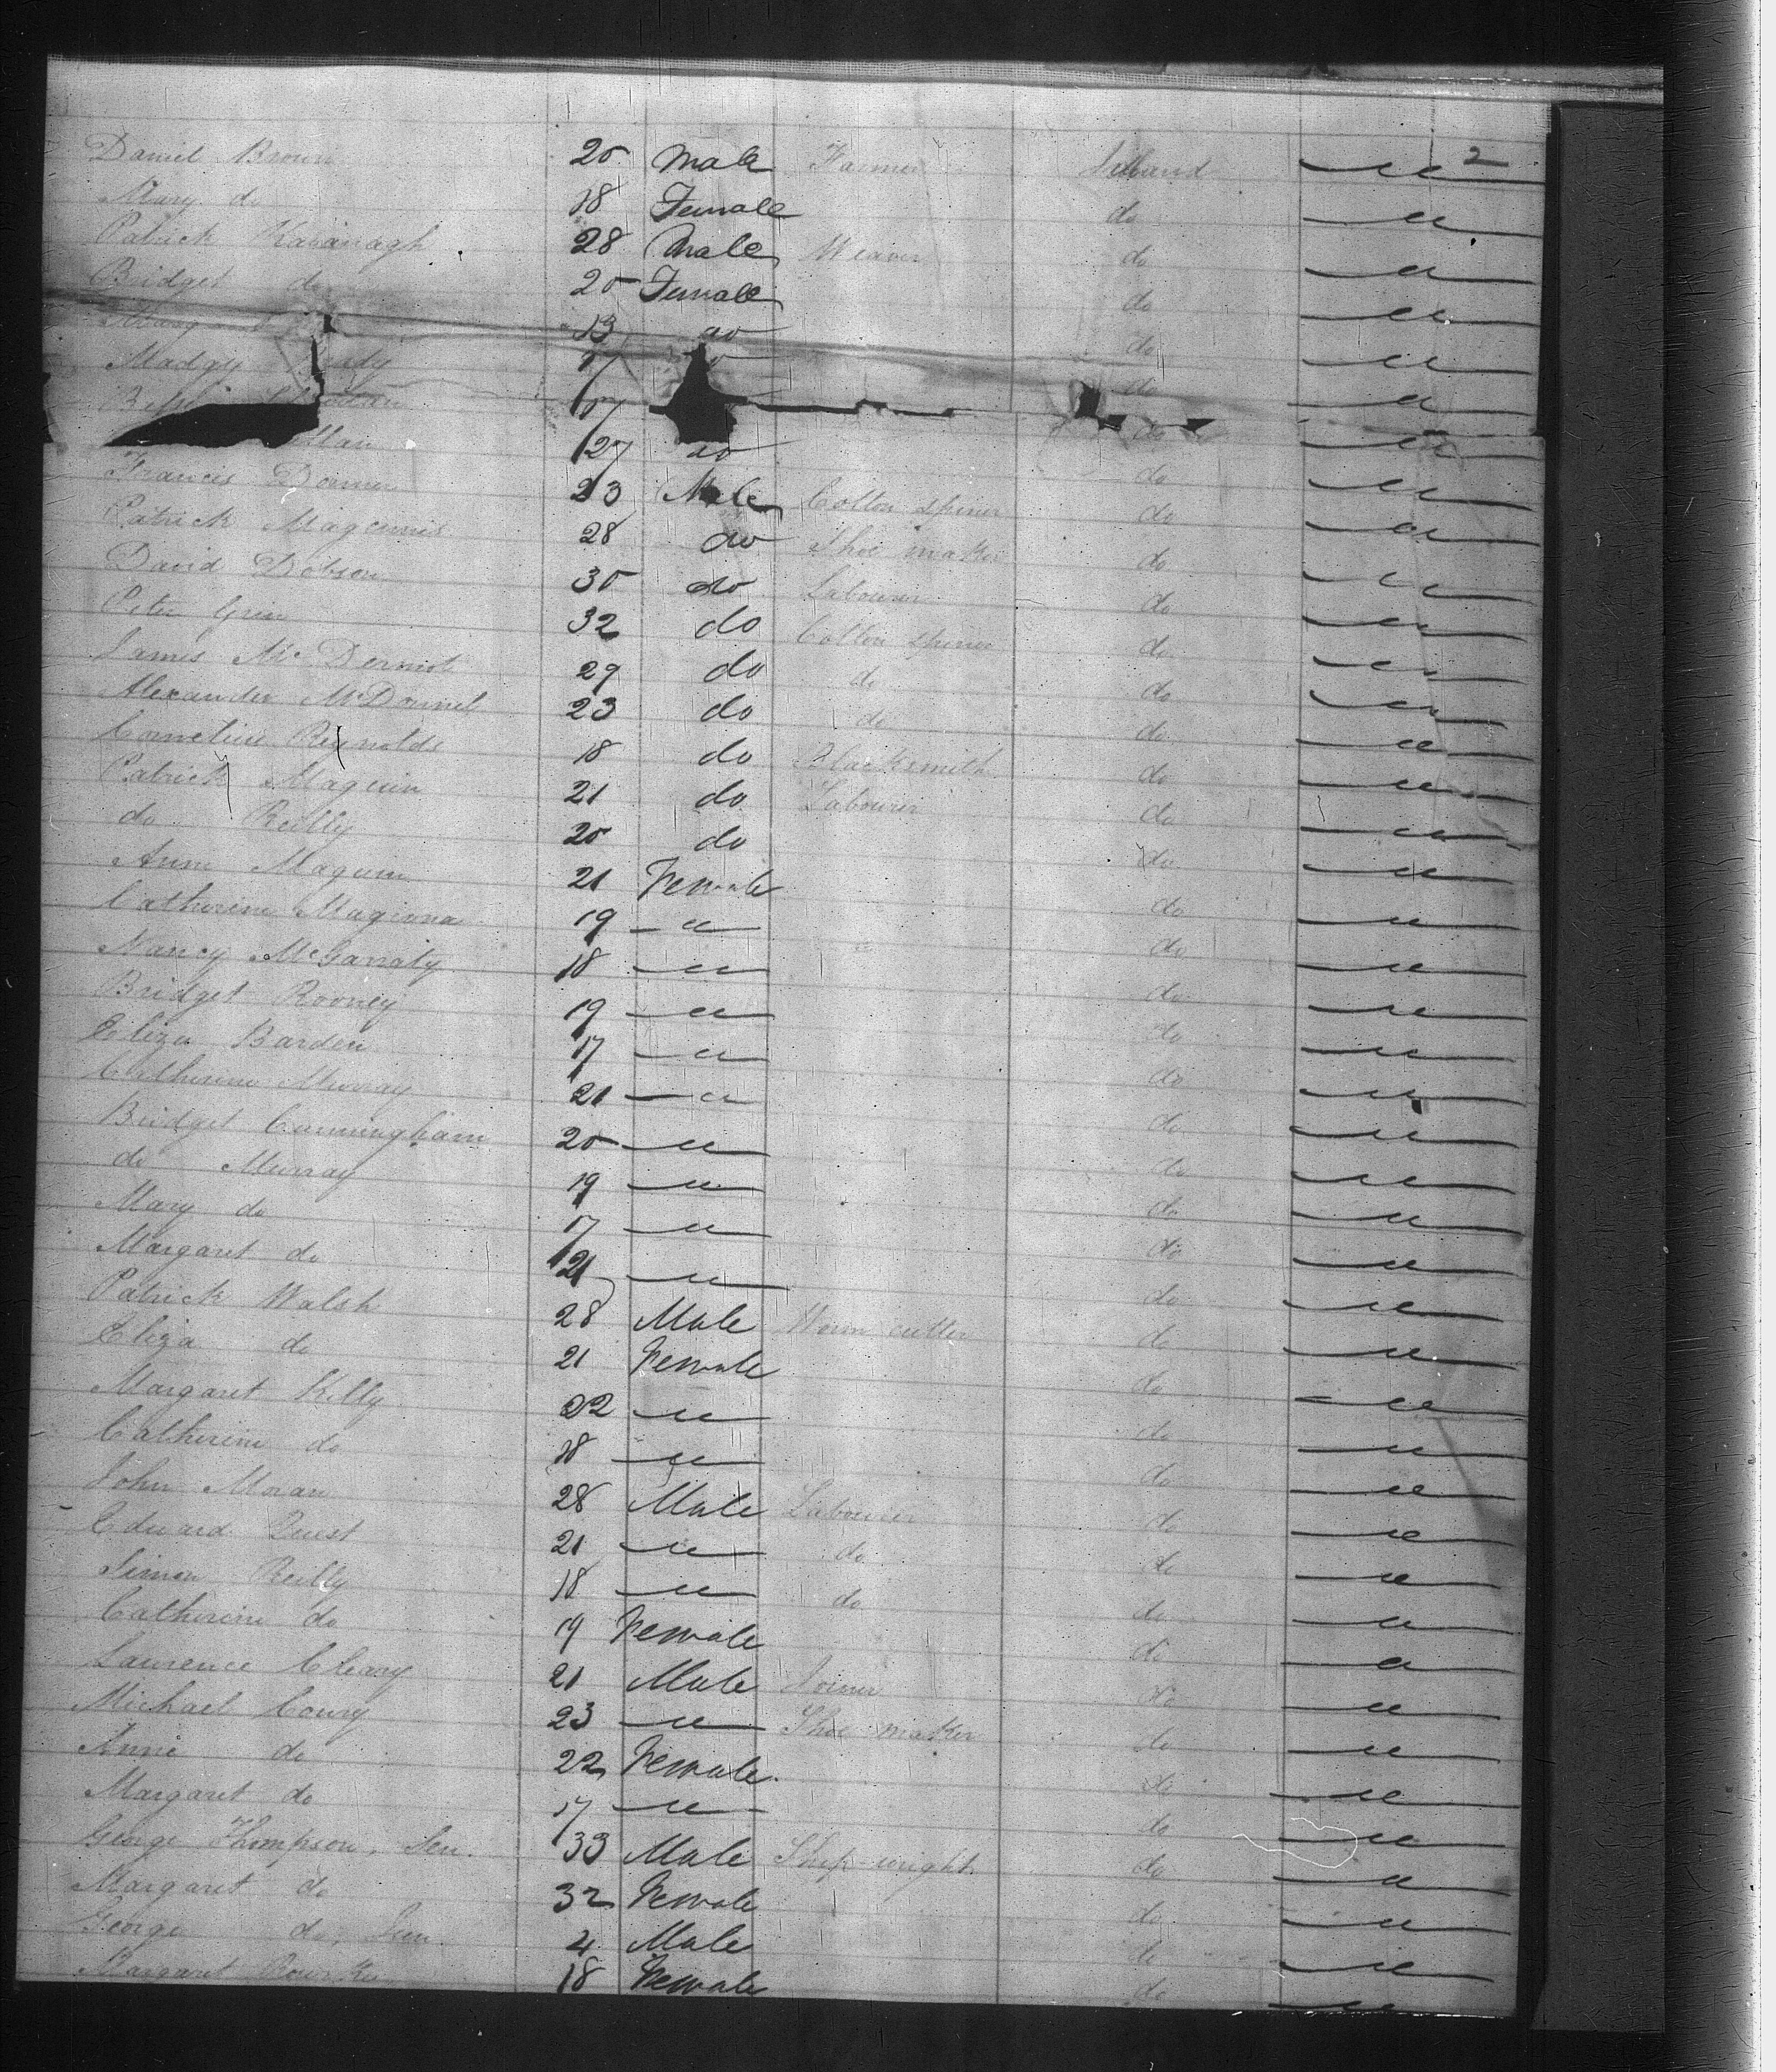 2
Daniel Brown 20 Male Farmer Ireland "
Mary do 18 Female do "
Patrick Kavanagh 28 Male Weaver do "
Bridget do 20 Female do "
Mary 13 do do "
Madgy 17 do do "
17 do "
27 do do "
Francis 23 Male Cotton spiner do "
Patrick Magennis 28 do Shoe maker do "
David Dobson 30 do Labourer do "
Peter 32 do Cotton spiner do "
James McDermot 29 do do do "
Alexander McDonnel 23 do do do "
Cornelius Reynolds 18 do Blacksmith do "
Patrick Maguire 21 do Labourer do "
do Reilly 20 do do "
Anne 21 Female do "
Catherine 19 " do "
Nancy 18 " do "
Bridget Rooney 19 " do "
Eliza Barden 17 " do "
Catherine Murray 21 " do "
Bridget Cunningham 20 " do "
do Murray 19 " do "
Mary do 17 " do "
Margaret do 21 " do "
Patrick Walsh 28 Male cutter do "
Eliza do 21 Female do "
Margaret Kelly 22 " do "
Catherine do 18 " do "
John Moran 28 Male Labourer do "
Edward 21 " do do "
Simon Reilly 18 " do do "
Catherine do 19 Female do "
Laurence Cleary 21 Male Joiner do "
Michael 23 " Shoe maker do "
Anne do 22 Female do "
Margaret do 17 " do "
George Thompson, Sen. 33 Male Ship-wright do "
Margaret do 32 Female do "
George do, 4 Male do "
Margaret 18 Female do "